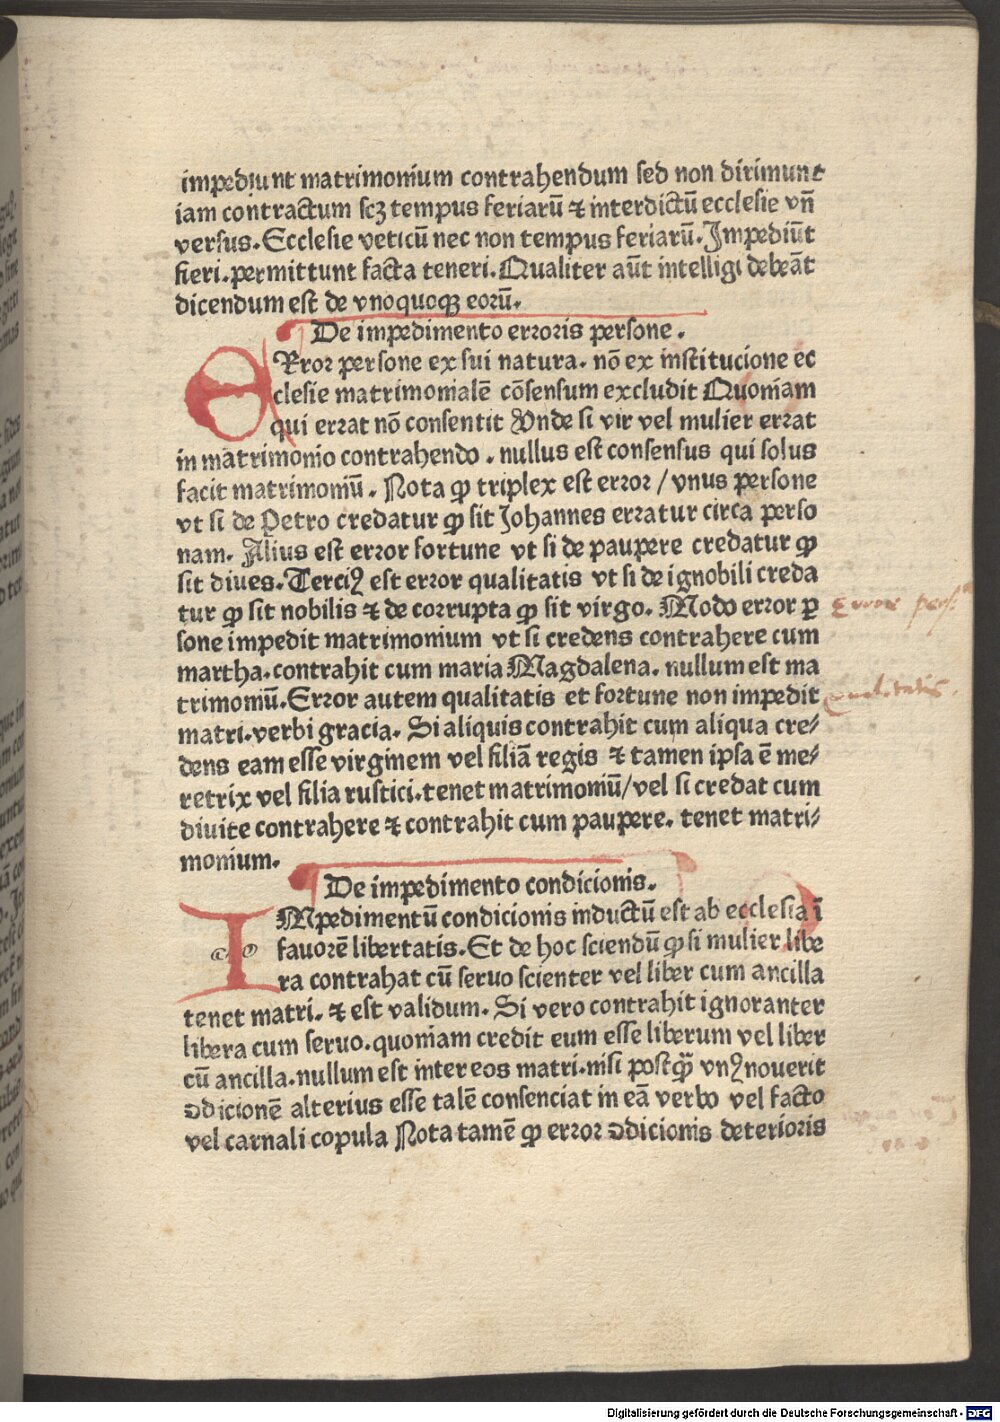 impediunt matrimonium contrahendum sed non dirimunt
iam contractum scꝫ tempus feriarū ⁊ interdictū ecclesie vn̄
versus. Ecclesie veticū nec non tempus feriarū. Impediūt
fieri. permittunt facta teneri. Qualiter aūt intelligi debeāt
dicendum est de vnoquoqꝫ eorū.
De impedimento erroris persone.
ERror persone ex sui natura. nō ex institucione ec
clesie matrimonialē cōsensum excludit Quoniam
qui errat nō consentit Vnde si vir vel mulier errat
in matrimonio contrahendo. nullus est consensus qui solus
facit matrimoniū. Nota ꝙ triplex est error / vnus persone
vt si de Petro credatur ꝙ sit Johannes erratur circa perso
nam. Alius est error fortune vt si de paupere credatur ꝙ
sit diues. Terciꝰ est error qualitatis vt si de ignobili creda
tur ꝙ sit nobilis ⁊ de corrupta ꝙ sit virgo. Modo error ꝑ
sone impedit matrimonium vt si credens contrahere cum
martha. contrahit cum maria Magdalena. nullum est ma
trimoniū. Error autem qualitatis et fortune non impedit
matri. verbi gracia. Si aliquis contrahit cum aliqua cre/
dens eam esse virginem vel filiā regis ⁊ tamen ipsa ē me/
retrix vel filia rustici. tenet matrimoniū/ vel si credat cum
diuite contrahere ⁊ contrahit cum paupere. tenet matri/
monium.
De impedimento condicionis.
IMpedimentū condicionis inductū est ab ecclesia ī
fauorē libertatis. Et de hoc sciendū ꝙ si mulier libe
ra contrahat cū seruo scienter vel liber cum ancilla
tenet matri. ⁊ est validum. Si vero contrahit ignoranter
libera cum seruo. quoniam credit eum esse liberum vel liber
cū ancilla. nullum est inter eos matri. nisi postꝙ̄ vnꝰ nouerit
ↄdicionē alterius esse talē consenciat in eā verbo vel facto
vel carnali copula Nota tamē ꝙ error ↄdicionis deterioris
Error pers.
qualitatis.
Digitalisierung gefördert durch die Deutsche Forschungsgemeinschaft - DFG